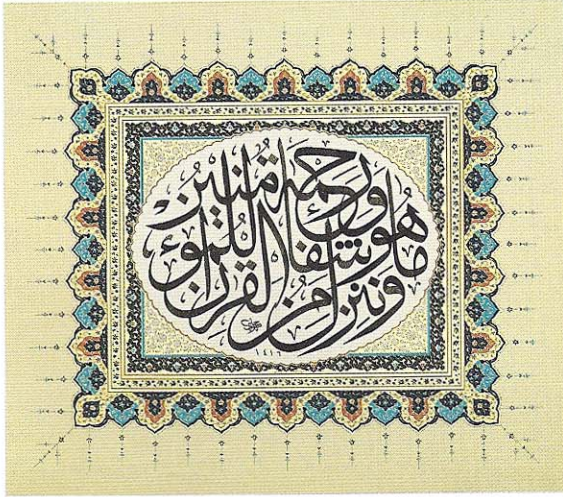 وننزل من القرآن
ما هو شفاء
ورحمة للمؤمنين
١٤١٦